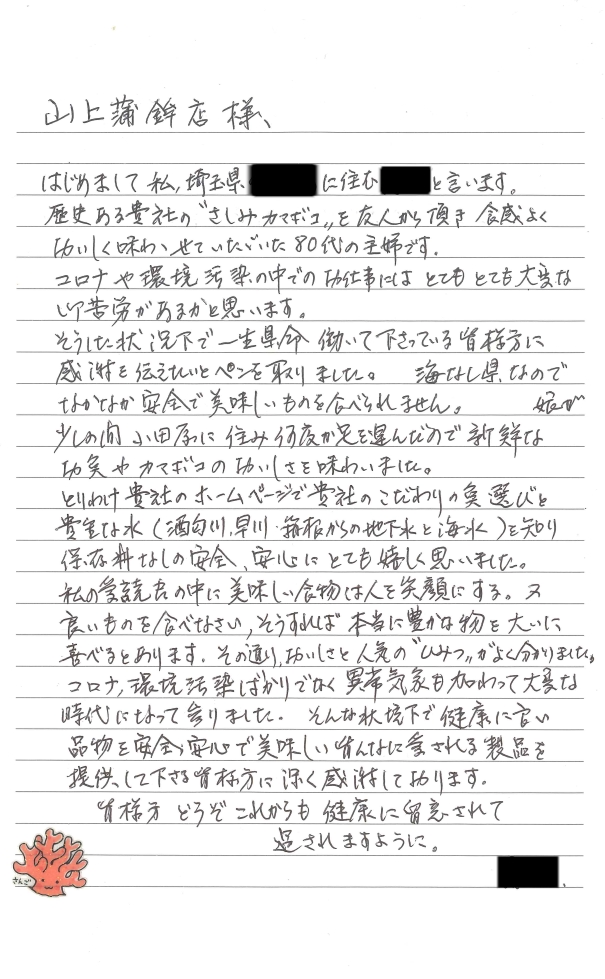 山上蒲鉾店様、
はじめまして 私、埼玉県 に住む と言います。
歴史ある貴社の"さしみカマボコ"を友人から頂き 食感よく
おいしく味わわせていただいた80代の主婦です。
コロナや環境汚染の中でのお仕事にはとてもとても大変な
ご苦労があるかと思います。
そうした状況下で一生懸命 働いて下さっている皆様方に
感謝を伝えたいとペンを取りました。 海なし県なので
なかなか安全で美味しいものを食べられません。 娘が
少しの間 小田原に住み何度か足を運んだので新鮮な
お魚やカマボコのおいしさを味わいました。
とりわけ貴社のホームページで貴社のこだわりの魚選びと
貴重な水（酒匂川、早川・箱根からの地下水と海水）を知り
保存料なしの安全、安心にとても嬉しく思いました。
私の愛読書の中に美味しい食物は人を笑顔にする。又
良いものを食べなさい、そうすれば本当に豊かな物を大いに
喜べるとあります。その通り、おいしさと人気の"ひみつ"がよく分かりました。
コロナ、環境汚染ばかりでなく異常気象も加わって大変な
時代になって参りました。 そんな状境下で健康に良い
品物を安全、安心で美味しい皆んなに愛される製品を
提供して下さる皆様方に深く感謝しております。
皆様方 どうぞこれからも健康に留意されて
過されますように。
さんご